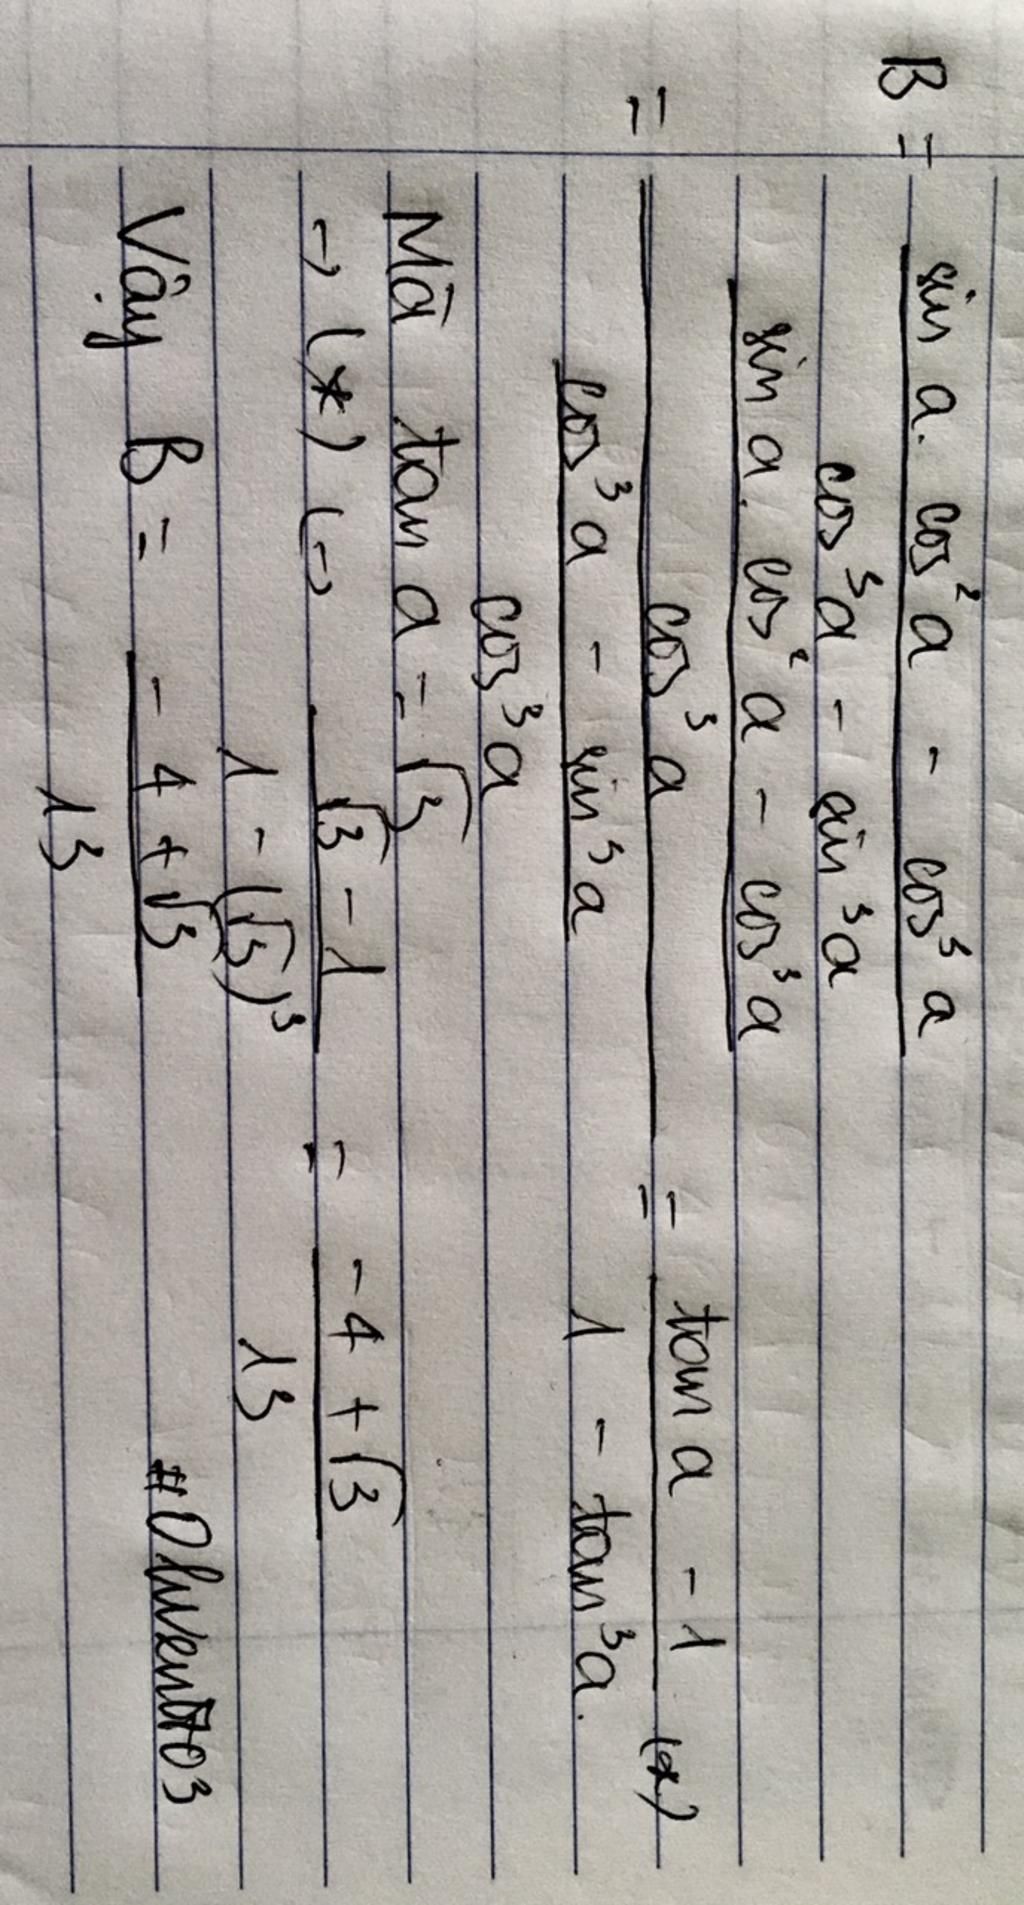 B = sin a. cos² a - cos³ a
cos³a - sin³a
= sin a. cos² a - cos³a
cos³ a
cos³ a - sin³ a
cos³ a
= tan a - 1 (*)
1 - tan³a.
Mà tan a = √3
→ (*) (→ √3 - 1 = -4 + √3
1 - (√3)³ 13
Vậy B = -4 + √3
13